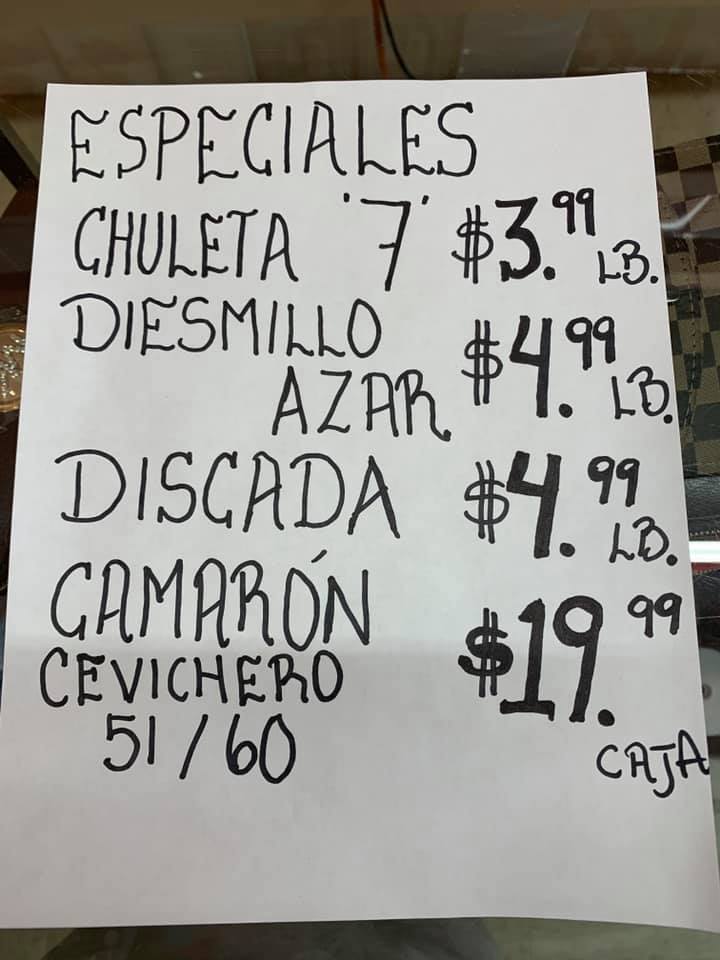 ESPECIALES
CHULETA '7' $3.99 LB.
DIESMILLO
AZAR. $4.99 LB.
DISCADA $4.99 LB.
CAMARÓN
CEVICHERO $19.99
51/60 CAJA